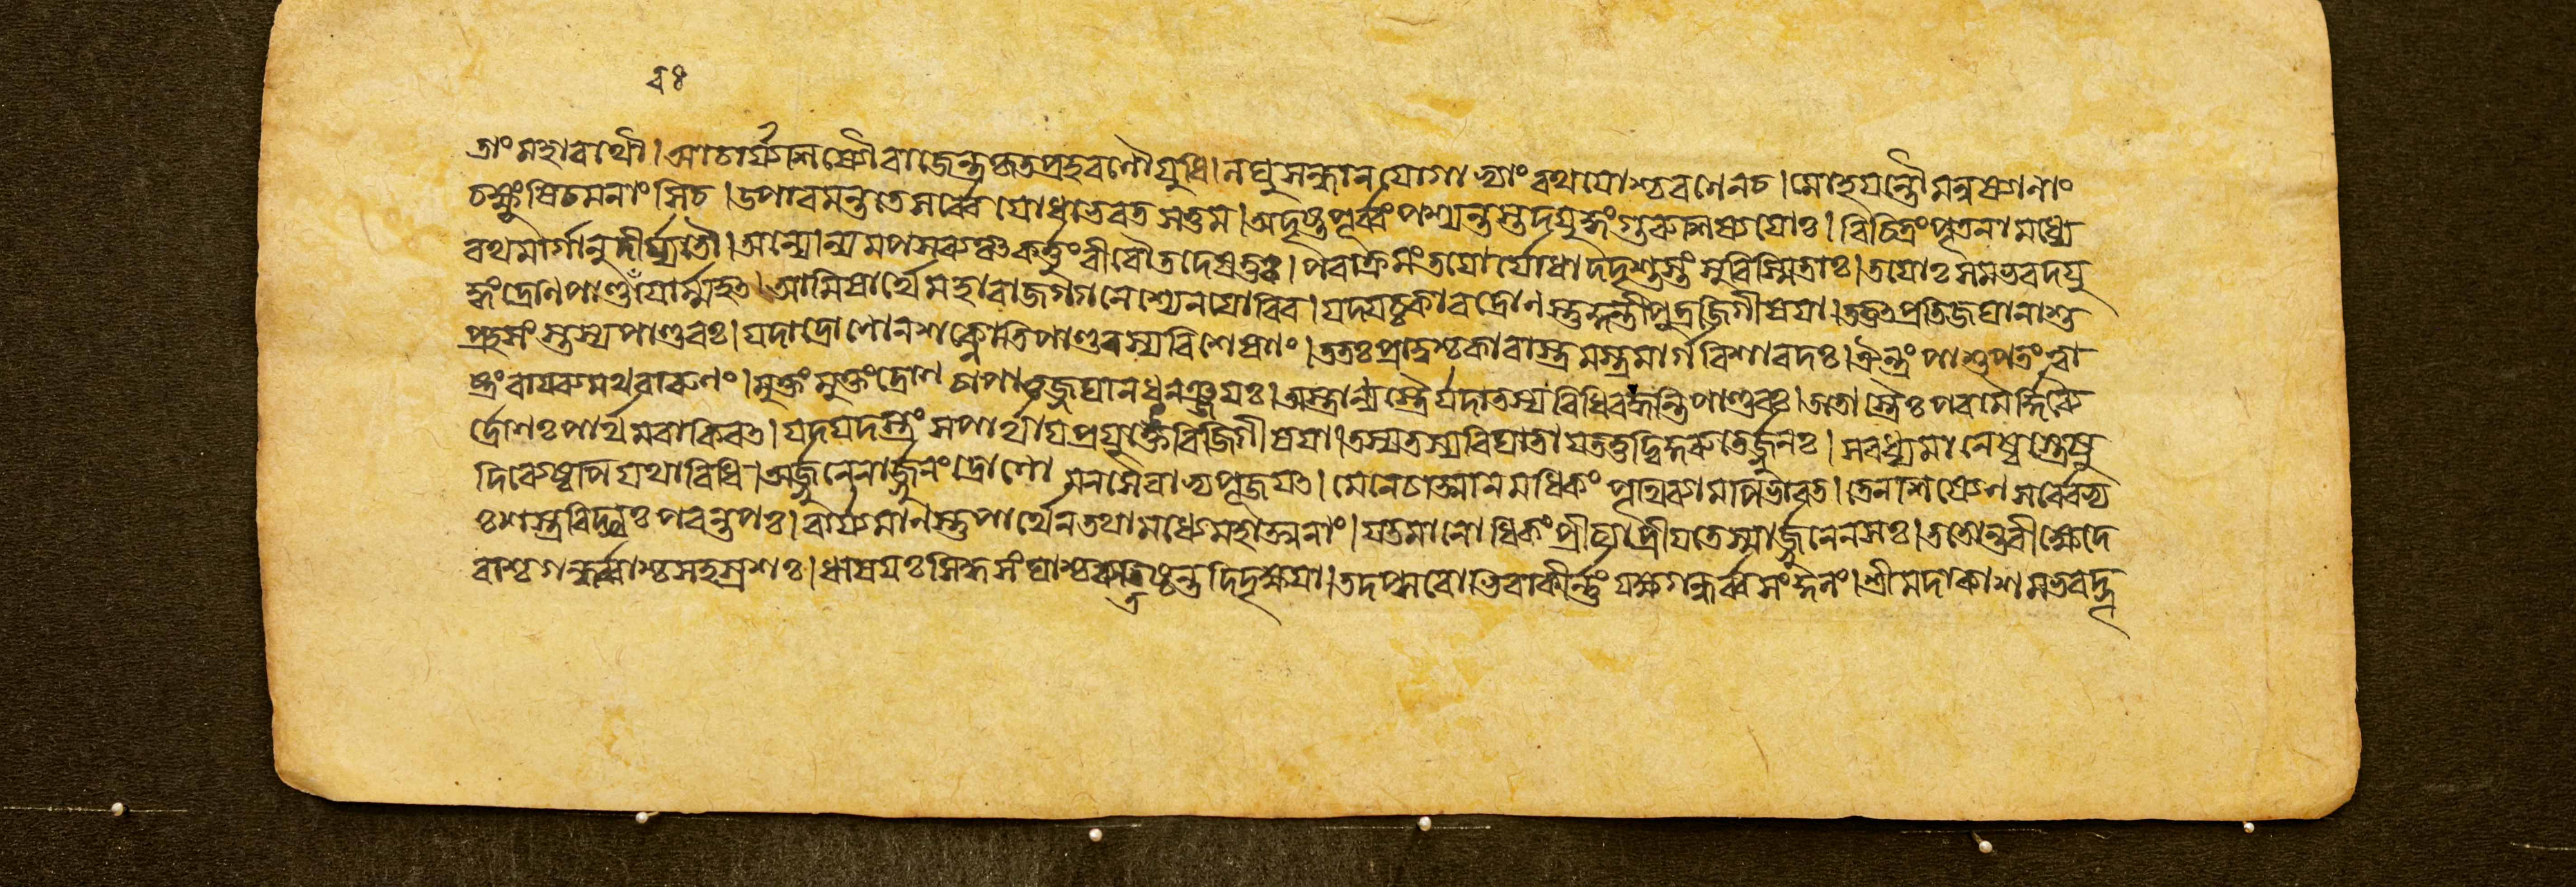 বঃ
ত্রাং মহাৰথৌ। আচার্য্যশিষ্যৌ ৰাজেন্দ্র কৃতপ্রহৰণৌ যুধি। লঘুসন্ধানযোগাভ্যাং ৰথযোশ্চ ৰণেন চ। মোহযন্তৌ মনুষ্যাণাং
চক্ষুংষি চ মনাংসি চ। উপাৰমন্ত তে সর্ব্বে যোধা ভৰতসত্তম। অদৃষ্টপূর্ব্বং পশ্যন্তস্তদ্যুদ্ধং গুৰুশিষ্যযোঃ। বিচিত্রং পৃতনামধ্যে
ৰথমার্গানুদীর্য্য তৌ। অন্যোন্যমপসৰ্যঞ্চ কর্ত্তুং বীৰৌ তদেষতুঃ। পৰাক্রমং তযোর্যোধা দদৃশুস্তং সুবিস্মিতাঃ। তযোঃ সমভবদ্যু
দ্ধং দ্রোণপাণ্ডবযোর্ম্মহৎ। আমিষার্থে মহাৰাজ গগনে শ্যেনযোৰিব। যদ্যচ্চকাৰ দ্রোণস্তু কুন্তীপুত্রজিগীষযা। তত্তৎ প্রতিজঘানাশু
প্রহসংস্তস্য পাণ্ডবঃ। যদা দ্রোণো ন শক্নোতি পাণ্ডবস্য বিশেষণং। ততঃ প্রাদুশ্চকাৰাস্ত্রমস্ত্রমার্গবিশাৰদঃ। ঐন্দ্রং পাশুপতং ত্বা
ষ্ট্রং বাযব্যমথ বাৰুণং। মুক্তং মুক্তং দ্রোণচাপাজ্জঘান ধনঞ্জযঃ। অস্ত্রাণ্যস্ত্রৈর্যদা তস্য বিধিবদ্ধন্তি পাণ্ডবঃ। ততোস্ত্রৈঃ পৰমৈর্দ্দিব্যৈ
র্দ্রোণঃ পার্থমবাকিৰৎ। যদ্যদস্ত্রং স পার্থায প্রযুঙ্ক্তে বিজিগীষযা। তস্য তস্য বিঘাতায তত্তদ্ধি কুৰুতেঽর্জ্জুনঃ। স বধ্যমানেষ্বস্ত্রেষু
দিব্যেষ্বপি যথাবিধি। অর্জ্জুনেনার্জ্জুনং দ্রোণো মনসৈবাভ্যপূজযৎ। মেনে চাত্মানমধিকং পৃথিব্যামপি ভাৰত। তেন শিষ্যেণ সর্ব্বেভ্য
ঃ শস্ত্রবিদ্ভ্যঃ পৰন্তপঃ। বার্য্যমাণস্তু পার্থেন তথা মধ্যে মহাত্মনাং। যতমানোধিকং প্রীত্যা প্রীযতে স্মার্জ্জুনেন সঃ। ততোন্তৰীক্ষে দে
বাশ্চ গন্ধর্ব্বাশ্চ সহস্রশঃ। ঋষযঃ সিদ্ধসংঘাশ্চ ব্যতিষ্ঠন্ত দিদৃক্ষযা। তদপ্সৰোভিৰাকীর্ণং যক্ষগন্ধর্ব্বসংকুলং। শ্রীমদাকাশমভবদ্ভূ